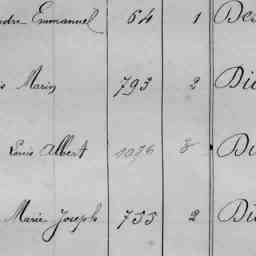 Emmanuel 64 1 De
Marin 793 2 Di
Louis Albert 1076 3 Du
Marie Joseph 733 2 Di